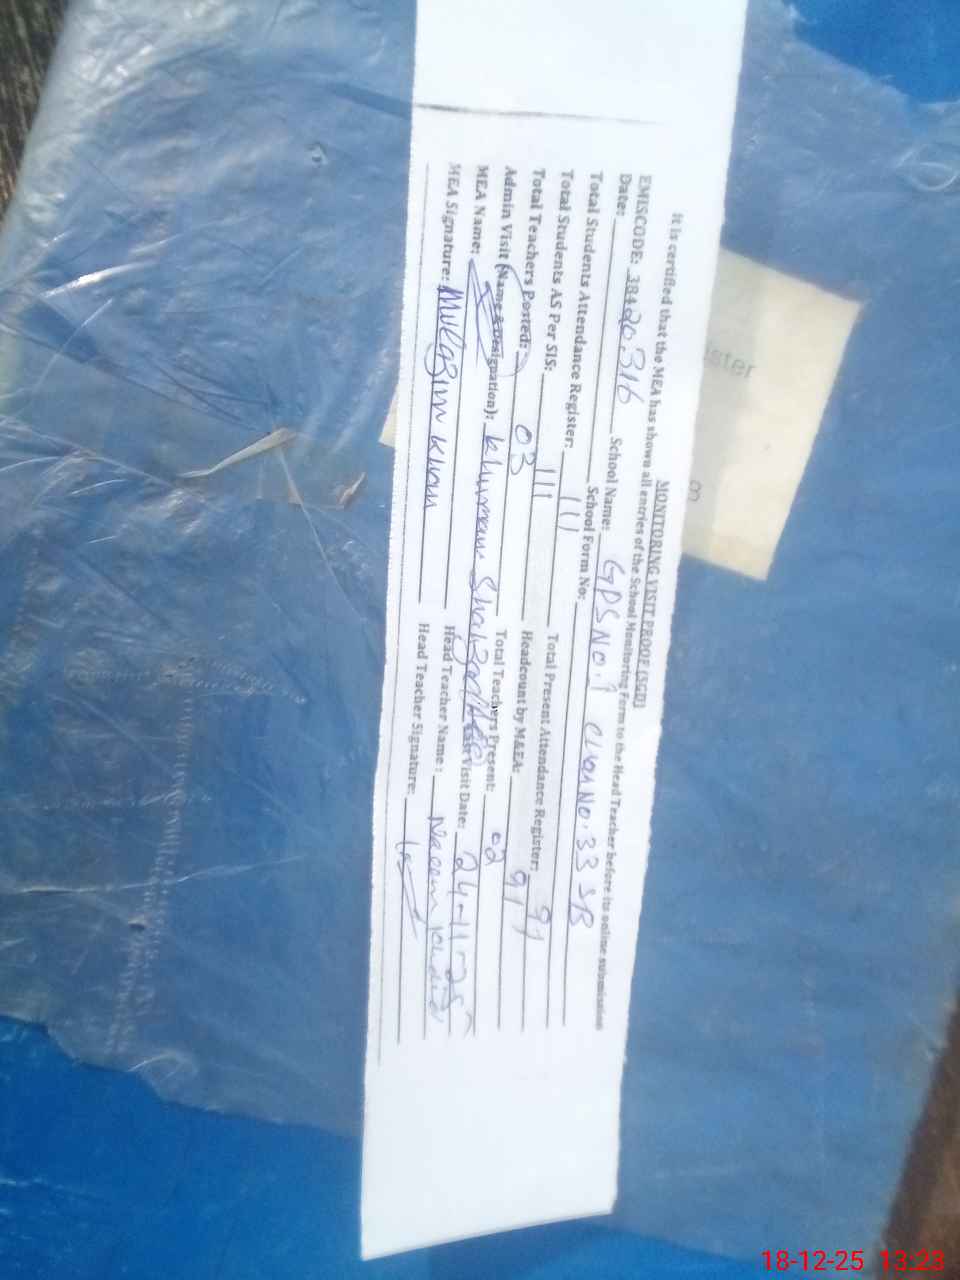 MONITORING VISIT PROOF (SGD)
It is certified that the MEA has shown all entries of the School Monitoring Form to the Head Teacher before its online submission
EMISCODE: 38420316 School Name: GPS NO.1 Chak No. 33 SB
Date: School Form No:
Total Students Attendance Register: 111 Total Present Attendance Register: 91
Total Students AS Per SIS: 111 Headcount by M&EA: 91
Total Teachers Posted: 03 Total Teachers Present: 02
Admin Visit (Name & Designation): Khurram Shahzad/AEO Visit Date: 24-11-25
MEA Name: Head Teacher Name: Naeem
MEA Signature: Mulazim Khan Head Teacher Signature:
ister
8
18-12-25 13:23